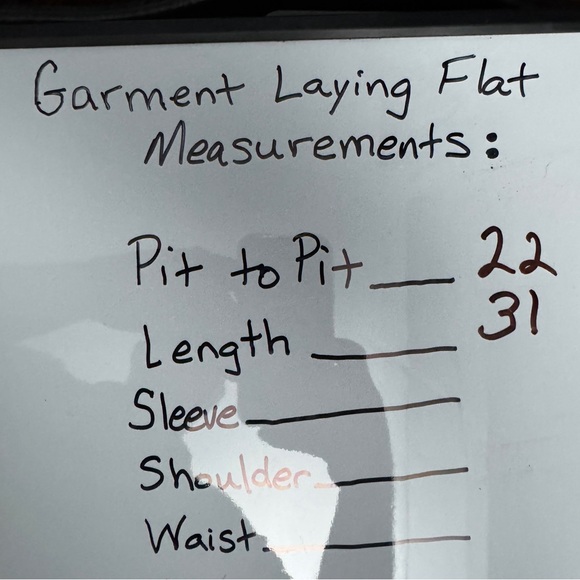 Garment Laying Flat
Measurements:
Pit to Pit ___ 22
Length ___ 31
Sleeve ___
Shoulder ___
Waist. ___